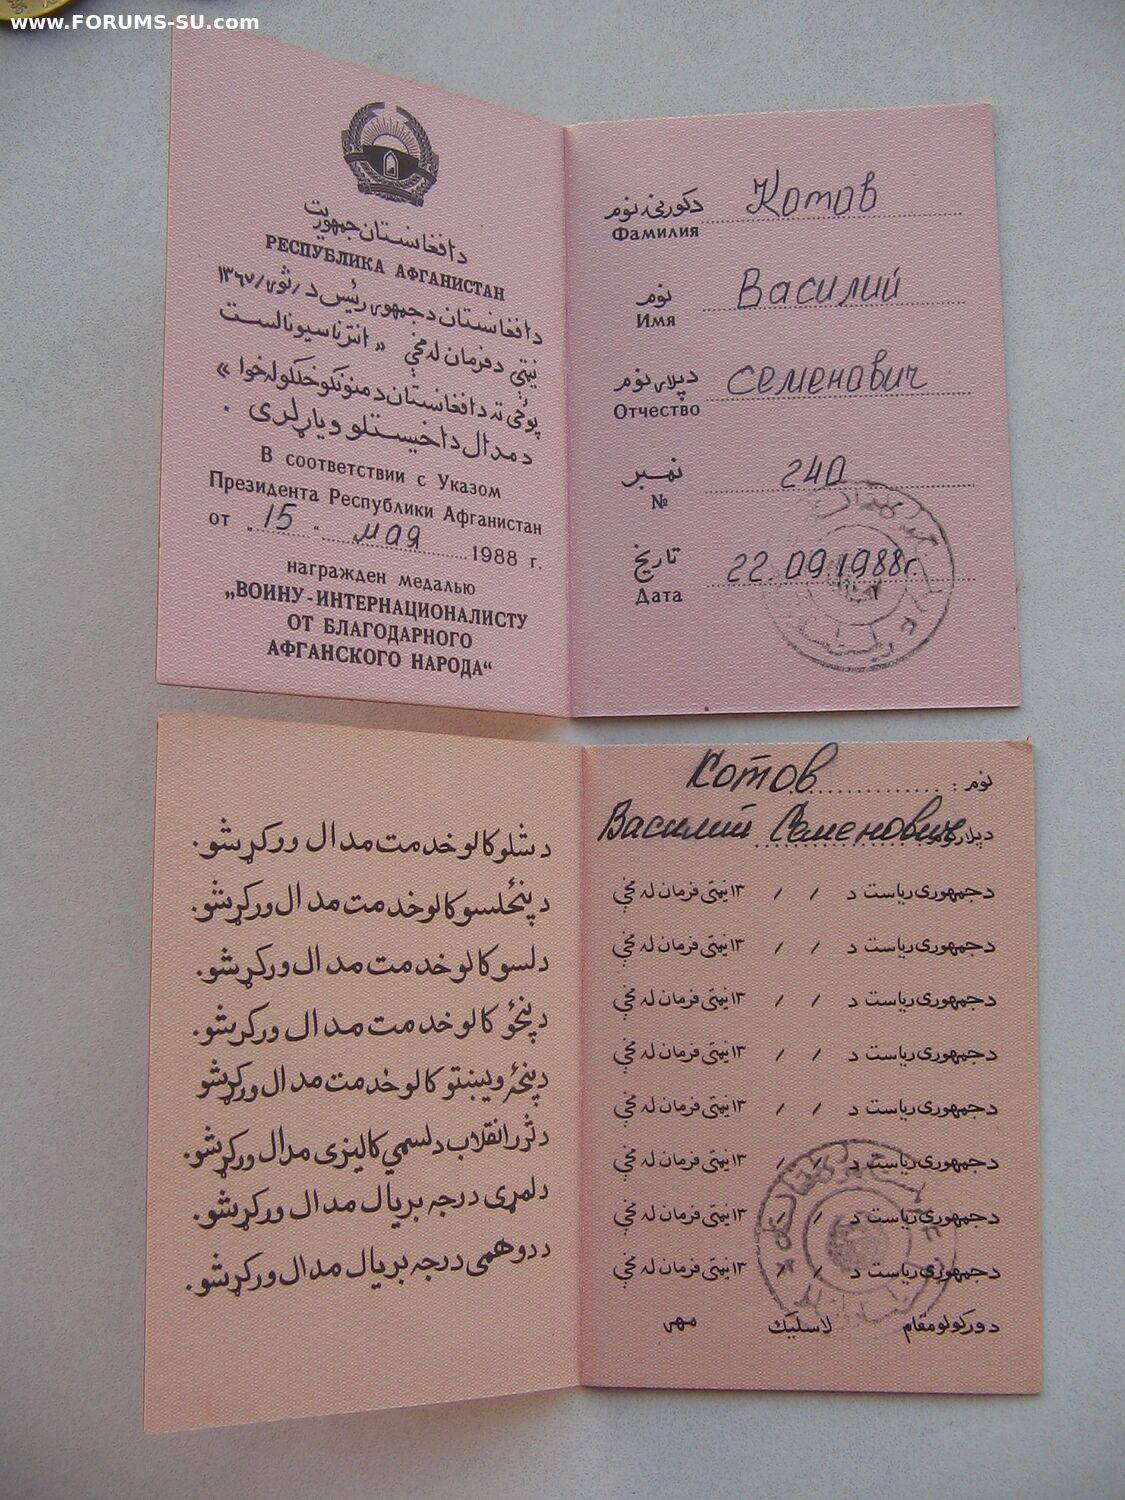 www.FORUMS-SU.com
دافغانستان جمهوریت
РЕСПУБЛИКА АФГАНИСТАН
دافغانستان دجمهوری رئیس د / ثور / ۱۳۶۷
نیټې دفرمان له مخې « انترناسیونالست
پوځی ته دافغانستان دمنونکو خلکو له خوا »
دمدال داخیستلو ویاړ لری .
В соответствии с Указом
Президента Республики Афганистан
от „ 15 " мая 1988 г.
награжден медалью
„ВОИНУ-ИНТЕРНАЦИОНАЛИСТУ
ОТ БЛАГОДАРНОГО
АФГАНСКОГО НАРОДА“
دکورنۍ نوم Котов
Фамилия
نوم Василий
Имя
دپلار نوم Семенович
Отчество
نمبر 240
№
تاریخ 22.09.1988г
Дата
دشلو کالو خدمت مدال ورکړ شو.
دپنځلسو کالو خدمت مدال ورکړ شو.
دلسو کالو خدمت مدال ورکړ شو.
دپنځو کالو خدمت مدال ورکړ شو.
دپنځه ویښتو کالو خدمت مدال ورکړ شو
دثور انقلاب دلسمې کالیزی مدال ورکړ شو.
دلمړی درجه بریال مدال ورکړ شو.
ددوهمی درجه بریال مدال ورکړ شو.
نوم : Котов
Василий Семенович
دجمهوری ریاست د / / ۱۳ نیټې فرمان له مخې
دجمهوری ریاست د / / ۱۳ نیټې فرمان له مخې
دجمهوری ریاست د / / ۱۳ نیټې فرمان له مخې
دجمهوری ریاست د / / ۱۳ نیټې فرمان له مخې
دجمهوری ریاست د / / ۱۳ نیټې فرمان له مخې
دجمهوری ریاست د / / ۱۳ نیټې فرمان له مخې
دجمهوری ریاست د / / ۱۳ نیټې فرمان له مخې
دجمهوری ریاست د / / ۱۳ نیټې فرمان له مخې
دورکولو مقام لاسلیک مهر